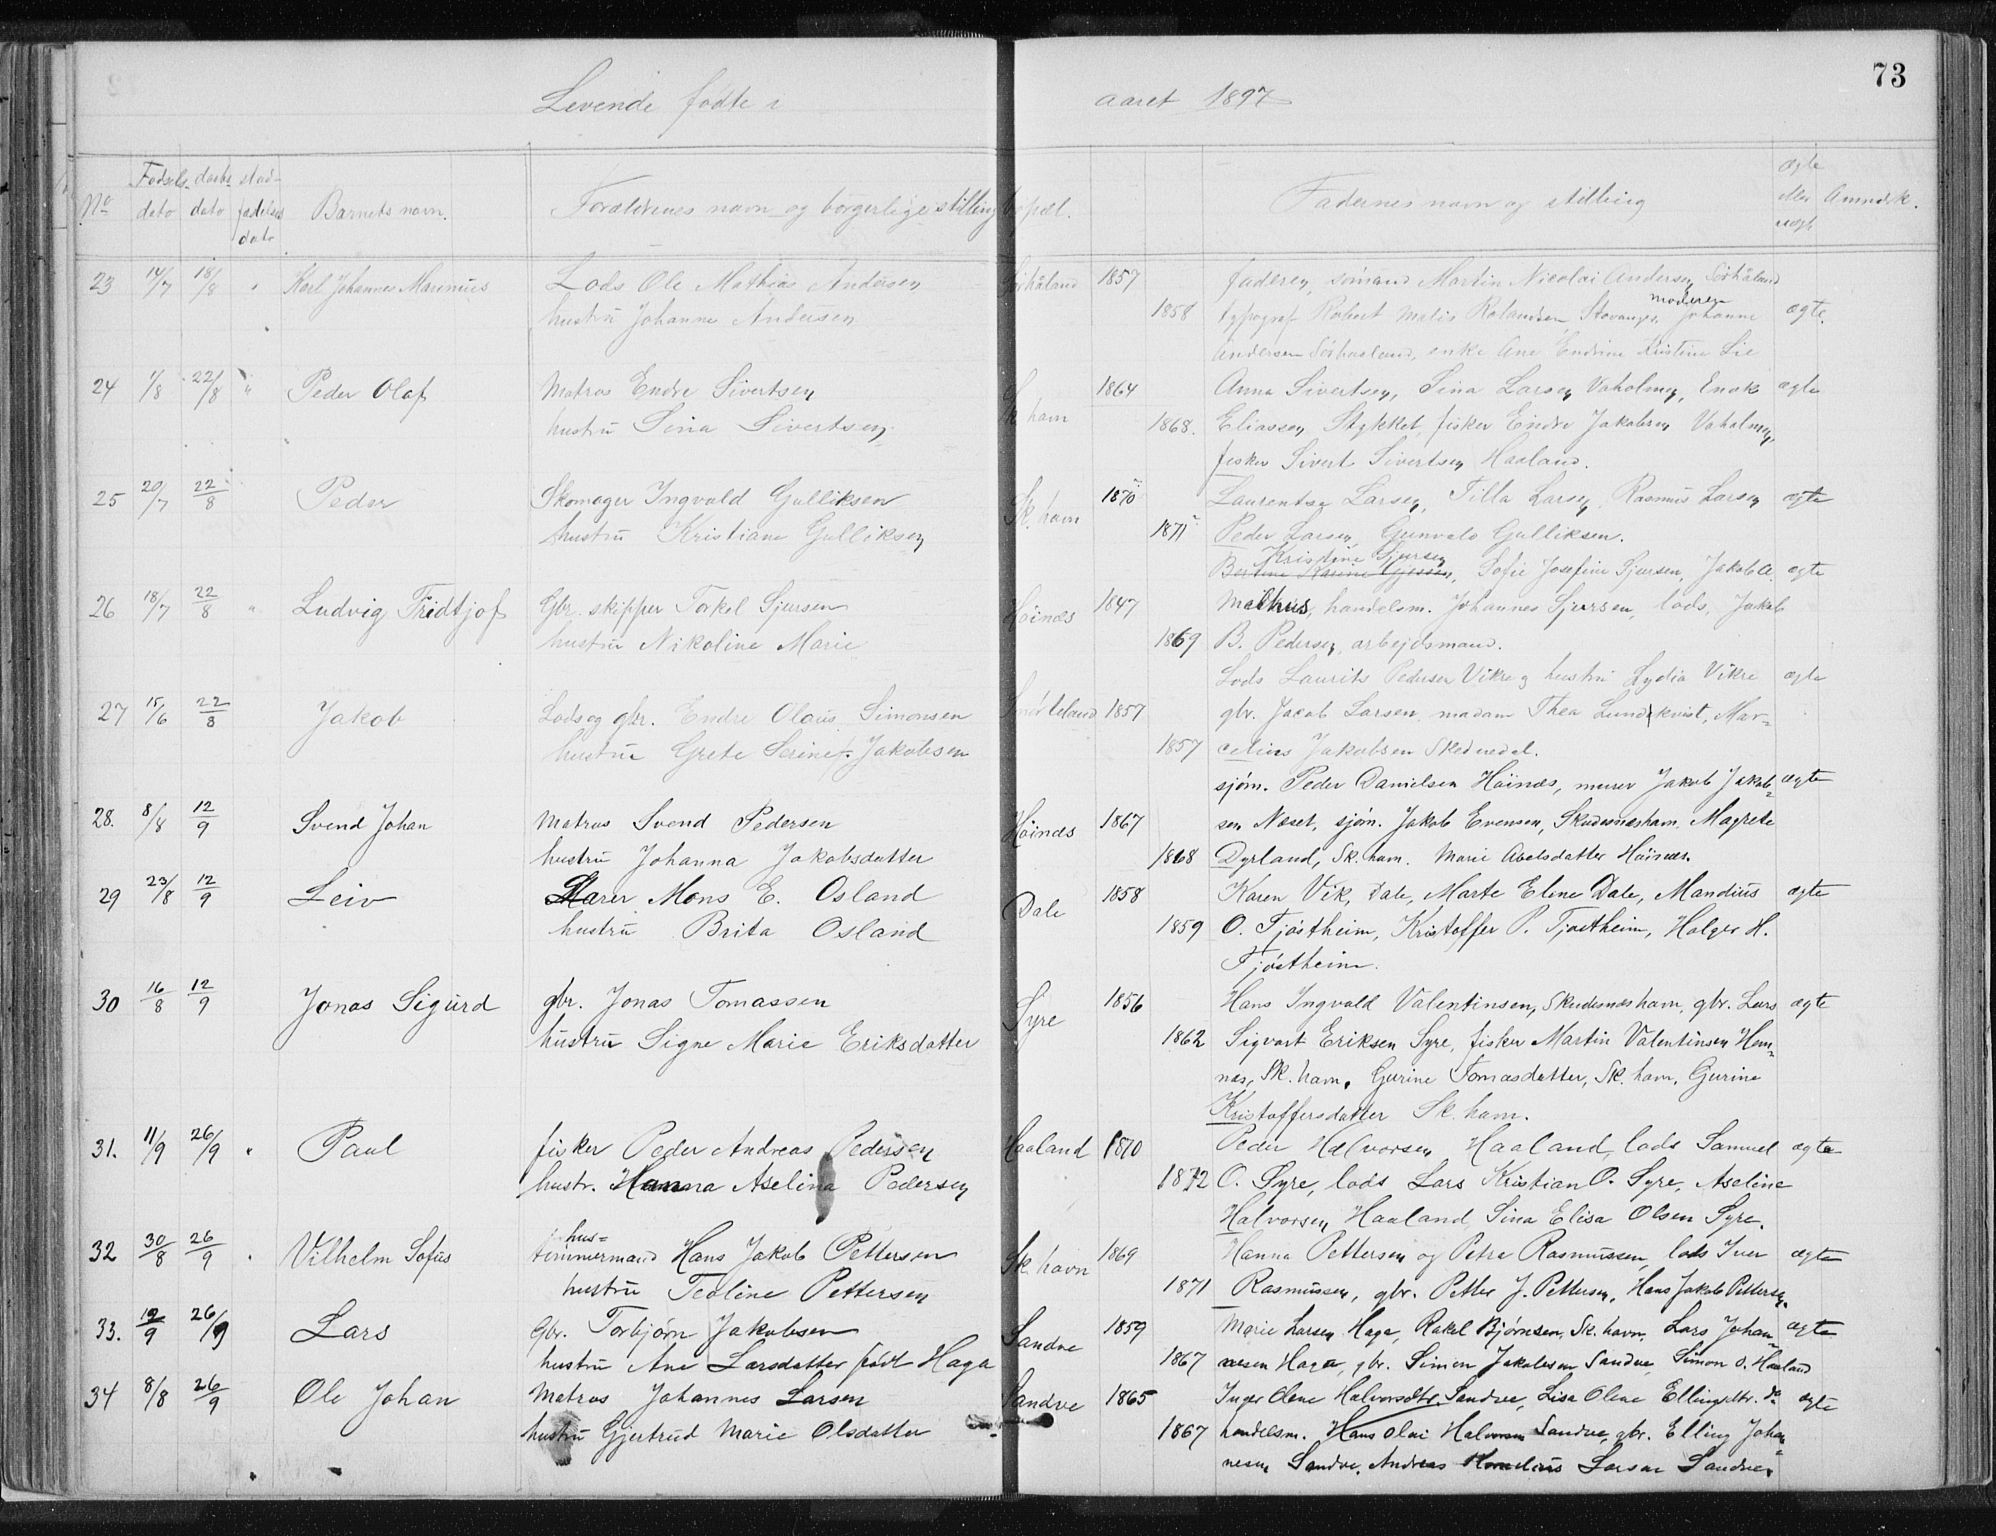 73
Levende fødte i aaret 1897
No Fødsels dato daabs dato stadfæstelses dato Barnets navn. Forældrenes navn og borgerlige stilling bopæl. Fadernes navn og stilling ægte eller uægte Anmerk.
23 14/7 18/8 " Karl Johannes Marinius Lods Ole Mathias Andersen Sørhåland 1857 faderen, sømand Martin Nicolai Andersen Sørhåland
hustru Johanne Andersen 1858 typograf Robert Malis Rolandsen, Stavanger, moderen Johanne ægte.
Andersen Sørhaaland, enke Ane Endrine Kristine Lie
24 1/8 22/8 " Peder Olaf Matros Endre Sivertsen Sk. havn 1864 Anna Sivertsen, Sina Larsen Vaholmen, Enok ægte
hustru Sina Sivertsen. 1868. Eliassen, Stykket, fisker Endre Jakobsen Vaholmen,
fisker Sivert Sivertsen Haaland.
25 20/7 22/8 Peder Skomager Ingvald Gulliksen Sk. havn 1870 Laurentse Larsen, Tilla Larsen, Rasmus Larsen ægte
hustru Kristiane Gulliksen 1871 Peder Larsen, Gunvald Gulliksen.
Kristine Sjursen
Bertine Karine Gjessen, Sofie Josefine Sjursen, Jakob A. ægte
26 18/7 22/8 " Ludvig Fridtjof Gbr. skipper Torkel Sjursen Høinæs 1847 Mælhus, handelsm. Johannes Sjursen, lods, Jakob
hustru Nikoline Marie 1869 B. Pedersen, arbejdsmand.
Lods Laurits Pedersen Vikre og hustru Lydia Vikre ægte
27 15/6 22/8 Jakob Lods og gbr. Endre Olaus Simonsen 1857 gbr. Jacob Larsen, madam Thea Lundkvist, Mar-
hustru Grete Serine f. Jakobsen 1857 celius Jakobsen Skeduedal.
sjøm. Peder Danielsen Høinæs, murer Jakob Jakob- ægte
28. 8/8 12/9 Svend Johan Matros Svend Pedersen Høinæs 1867 sen Næset, sjøm. Jakob Evensen, Skudesnæshavn, Magrete
hustru Johanna Jakobsdatter 1868 Dyrland, Sk. havn. Marie Abelsdatter Høinæs.
29 23/8 12/9 Leiv Lærer Mons E. Osland Dale 1858 Karen Vik, Dale, Marte Elene Dale, Mandius ægte
hustru Brita Osland 1859 O. Tjøstheim, Kristoffer P. Tjøstheim, Holger H.
Tjøstheim.
30 16/8 12/9 Jonas Sigurd gbr. Jonas Tomassen Syre 1856 Hans Ingvald Valentinsen, Skudesnæshavn, gbr. Lars ægte
hustru Signe Marie Eriksdatter 1862 Sigvart Eriksen Syre, fisker Martin Valentinsen Hem-
næs, Sk. havn, Gurine Tomasdatter, Sk. havn, Gurine
Kristoffersdatter Sk. havn.
31. 11/9 26/9 " Paul fisker Peder Andreas Pedersen Haaland 1870 Peder Halvorsen Haaland, lods Samuel ægte
hustr. Hanna Aselina Pedersen 1872 O. Syre, lods Lars Kristian O. Syre, Aseline
Halvorsen, Haaland, Sina Elisa Olsen Syre.
32 30/8 26/9 " Vilhelm Sofus hus-tømmermand Hans Jakob Pettersen Sk. havn 1869 Hanna Pettersen og Petra Rasmussen, lods Iver ægte
hustru Teoline Pettersen 1871 Rasmussen, gbr. Petter J. Pettersen, Hans Jakob Pettersen.
33. 12/9 26/9 Lars Gbr. Torbjørn Jakobsen Sandve 1859 Marie Larsen Haga, Rakel Bjørnsen, Sk. havn, Lars Johan- ægte
hustru Ane Larsdatter født Haga 1867 nesen Haga, gbr. Simon Jakobsen Sandve, Simon S. Haaland
34 8/8 26/9 Ole Johan Matros Johannes Larsen Sandve 1865 Inger Olene Halvorsdtr. Sandve, Lisa Olene Ellingsdtr. do ægte
hustru Gjertrud Marie Olsdatter 1867 handelsm. Hans Olai Halvorsen Sandve, gbr. Elling Johan-
nesen Sandve, Andreas Kornelius Larsen Sandve.